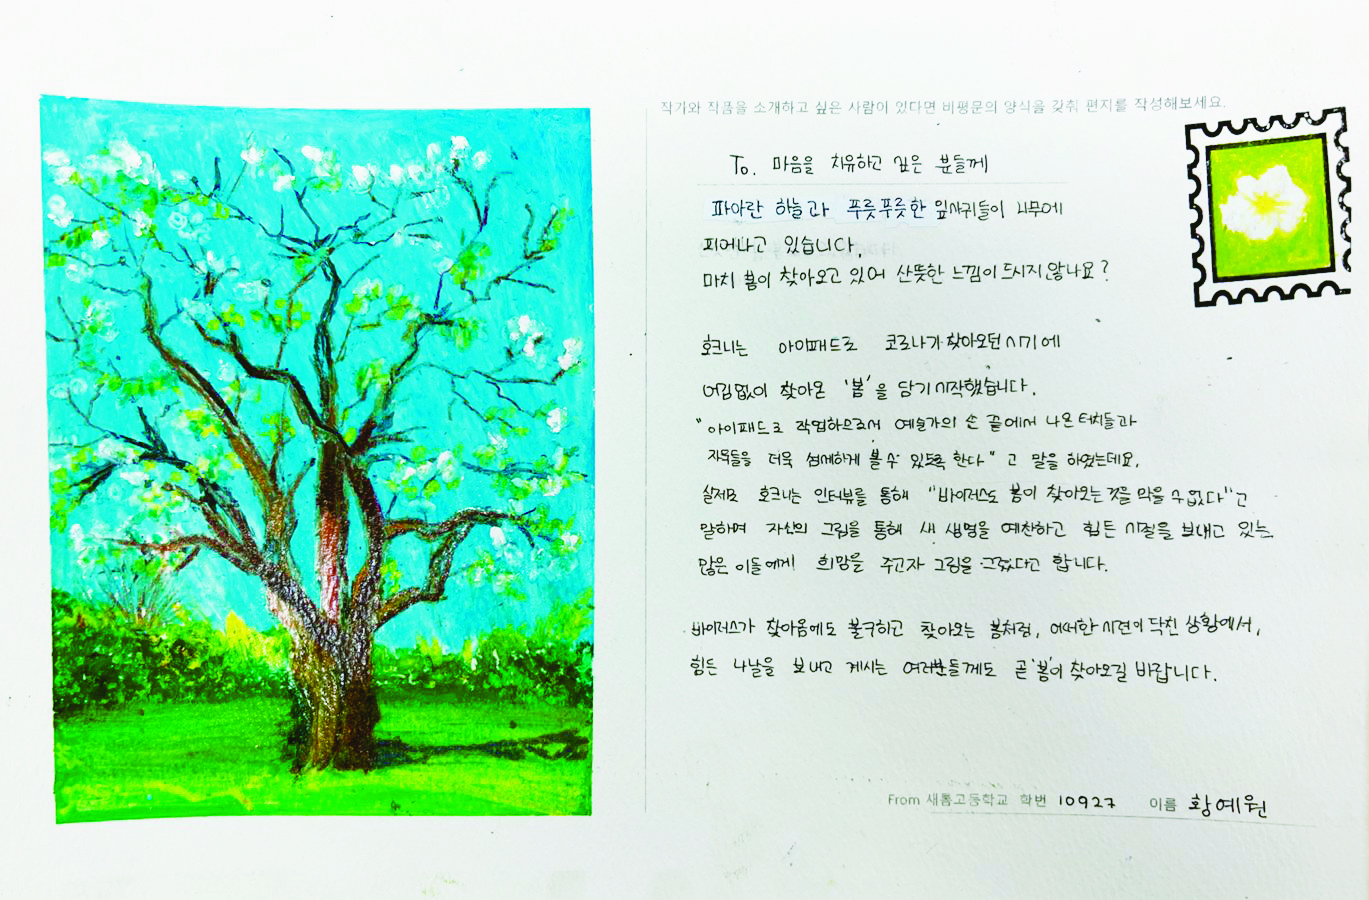 작가와 작품을 소개하고 싶은 사람이 있다면 비평문의 양식을 갖춰 편지를 작성해보세요.
To. 마음을 치유하고 싶은 분들께
파아란 하늘과 푸릇푸릇한 잎사귀들이 나무에
피어나고 있습니다.
마치 봄이 찾아오고 있어 산뜻한 느낌이 드시지 않나요?
호크니는 아이패드로 코로나가 찾아오던 시기에
어김없이 찾아온 '봄'을 담기 시작했습니다.
"아이패드로 작업하므로서 예술가의 손 끝에서 나온 터치들과
자국들을 더욱 섬세하게 볼 수 있도록 한다"고 말을 하였는데요,
실제로 호크니는 인터뷰를 통해 "바이러스도 봄이 찾아오는 것을 막을 수 없다"고
말하며 자신의 그림을 통해 새 생명을 예찬하고 힘든 시절을 보내고 있는
많은 이들에게 희망을 주고자 그림을 그렸다고 합니다.
바이러스가 찾아옴에도 불구하고 찾아오는 봄처럼, 어떠한 시련이 닥친 상황에서,
힘든 나날을 보내고 계시는 여러분들께도 곧 '봄'이 찾아오길 바랍니다.
From 새롬고등학교 학번 10927 이름 황예원